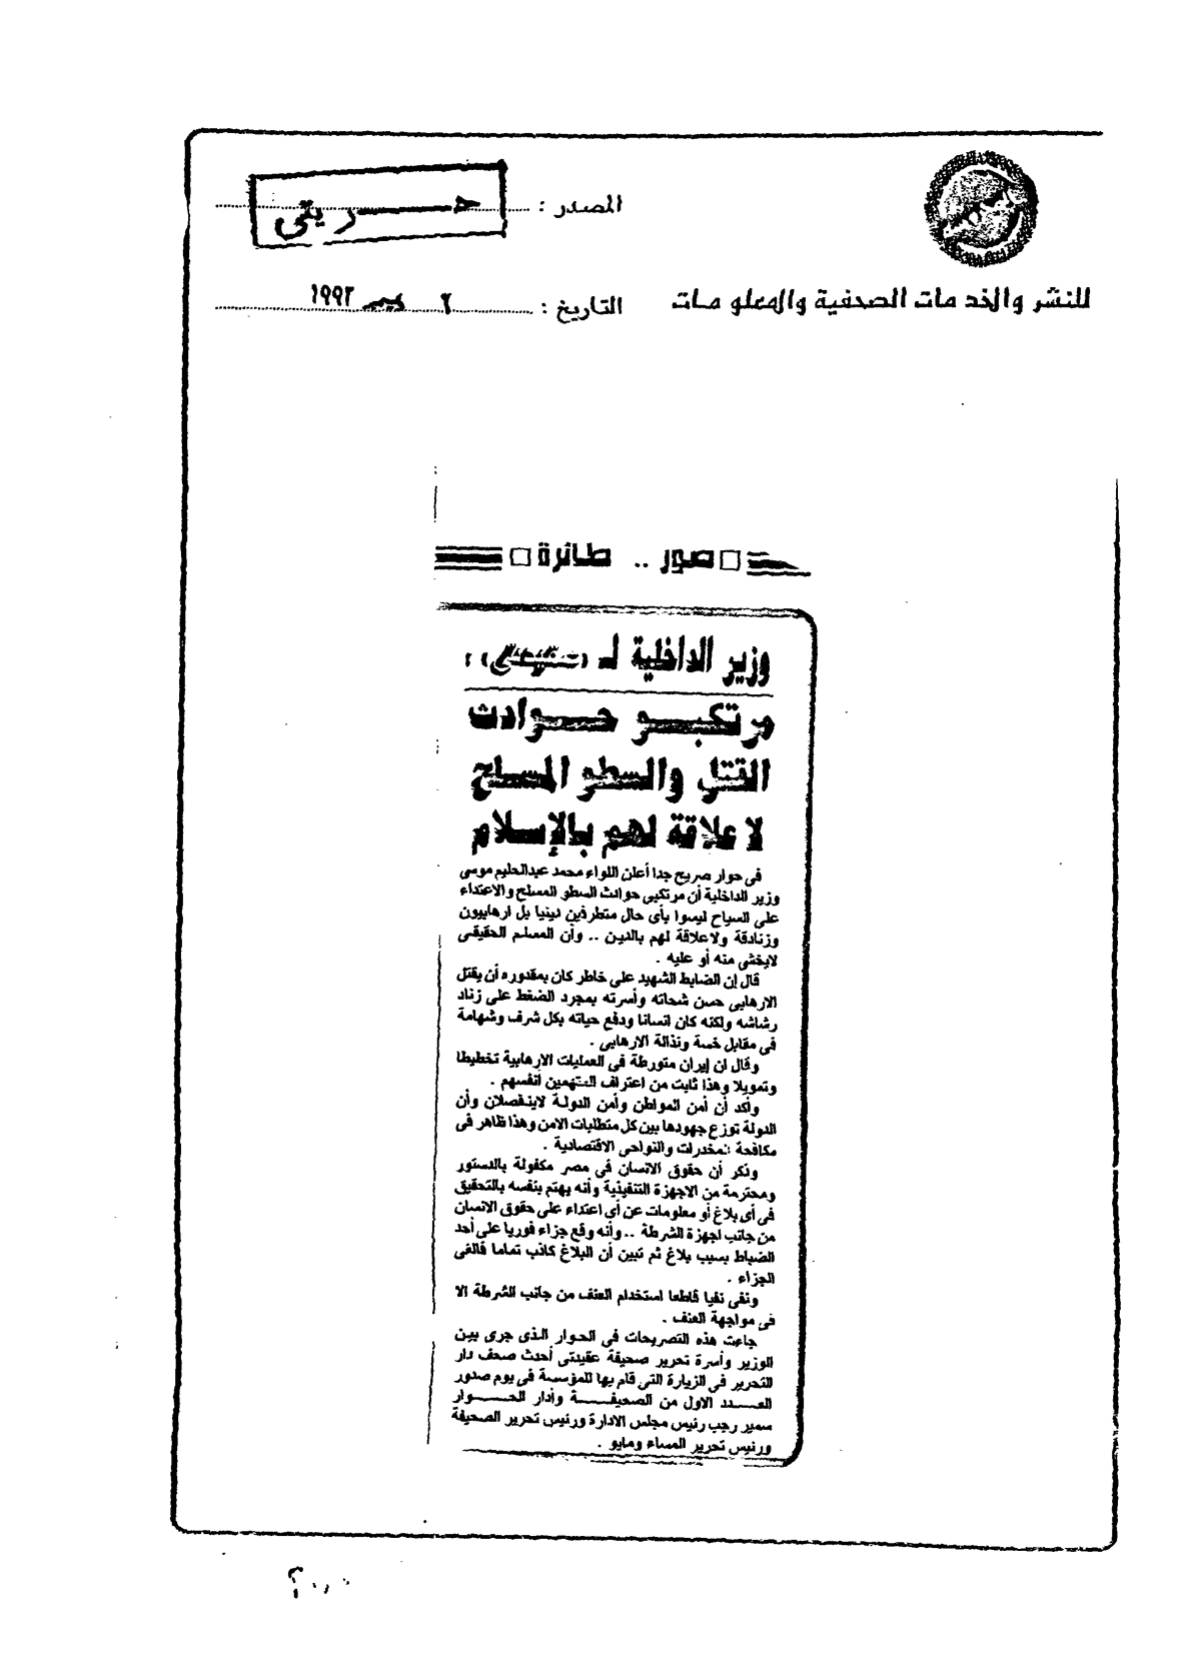 المصدر : حــــريتى
للنشر والخدمات الصحفية والمعلومات
التاريخ : ٢ ديسمبر ١٩٩٢
صور .. طائرة
وزير الداخلية لـ ( ) :
مرتكبــو حــوادث
القتل والسطو المسلح
لا علاقة لهم بالإسلام
فى حوار صريح جدا أعلن اللواء محمد عبدالحليم موسى
وزير الداخلية أن مرتكبى حوادث السطو المسلح والاعتداء
على السياح ليسوا بأى حال متطرفين دينيا بل ارهابيون
وزنادقة ولاعلاقة لهم بالدين .. وأن المسلم الحقيقى
لايخشى منه أو عليه .
قال إن الضابط الشهيد على خاطر كان بمقدوره أن يقتل
الارهابى حسن شحاته وأسرته بمجرد الضغط على زناد
رشاشه ولكنه كان انسانا ودفع حياته بكل شرف وشهامة
فى مقابل خسة ونذالة الارهابى .
وقال ان إيران متورطة فى العمليات الارهابية تخطيطا
وتمويلا وهذا ثابت من اعتراف المتهمين أنفسهم .
وأكد أن أمن المواطن وأمن الدولة لاينفصلان وأن
الدولة توزع جهودها بين كل متطلبات الامن وهذا ظاهر فى
مكافحة المخدرات والنواحى الاقتصادية .
وذكر أن حقوق الانسان فى مصر مكفولة بالدستور
ومحترمة من الاجهزة التنفيذية وأنه يهتم بنفسه بالتحقيق
فى أى بلاغ أو معلومات عن أى اعتداء على حقوق الانسان
من جانب اجهزة الشرطة .. وأنه وقع جزاء فوريا على أحد
الضباط بسبب بلاغ ثم تبين أن البلاغ كاذب تماما فالغى
الجزاء .
ونفى نفيا قاطعا استخدام العنف من جانب الشرطة الا
فى مواجهة العنف .
جاءت هذه التصريحات فى الحوار الذى جرى بين
الوزير وأسرة تحرير صحيفة عقيدتى أحدث صحف دار
التحرير فى الزيارة التى قام بها للمؤسسة فى يوم صدور
العــدد الاول من الصحيفــــة وأدار الحــوار
سمير رجب رئيس مجلس الادارة ورئيس تحرير الصحيفة
ورئيس تحرير المساء ومايو .